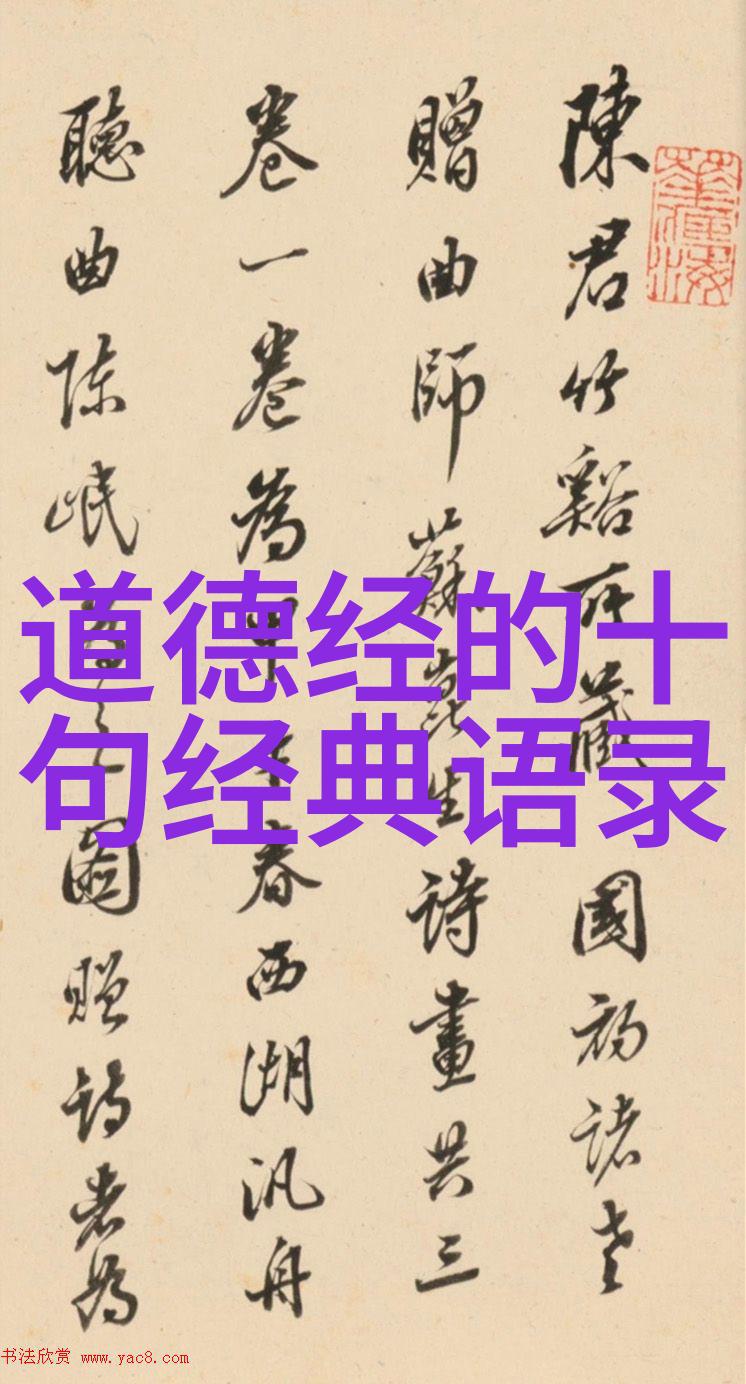 陳君竹谿所藏國初諸老
贈曲師蘇崑生詩畫共三
卷一卷為甲午春西湖汎舟
聽曲陈岷
圖贈詩者為
道德经的十
句经典语录
书法欣赏 www.yac8.com